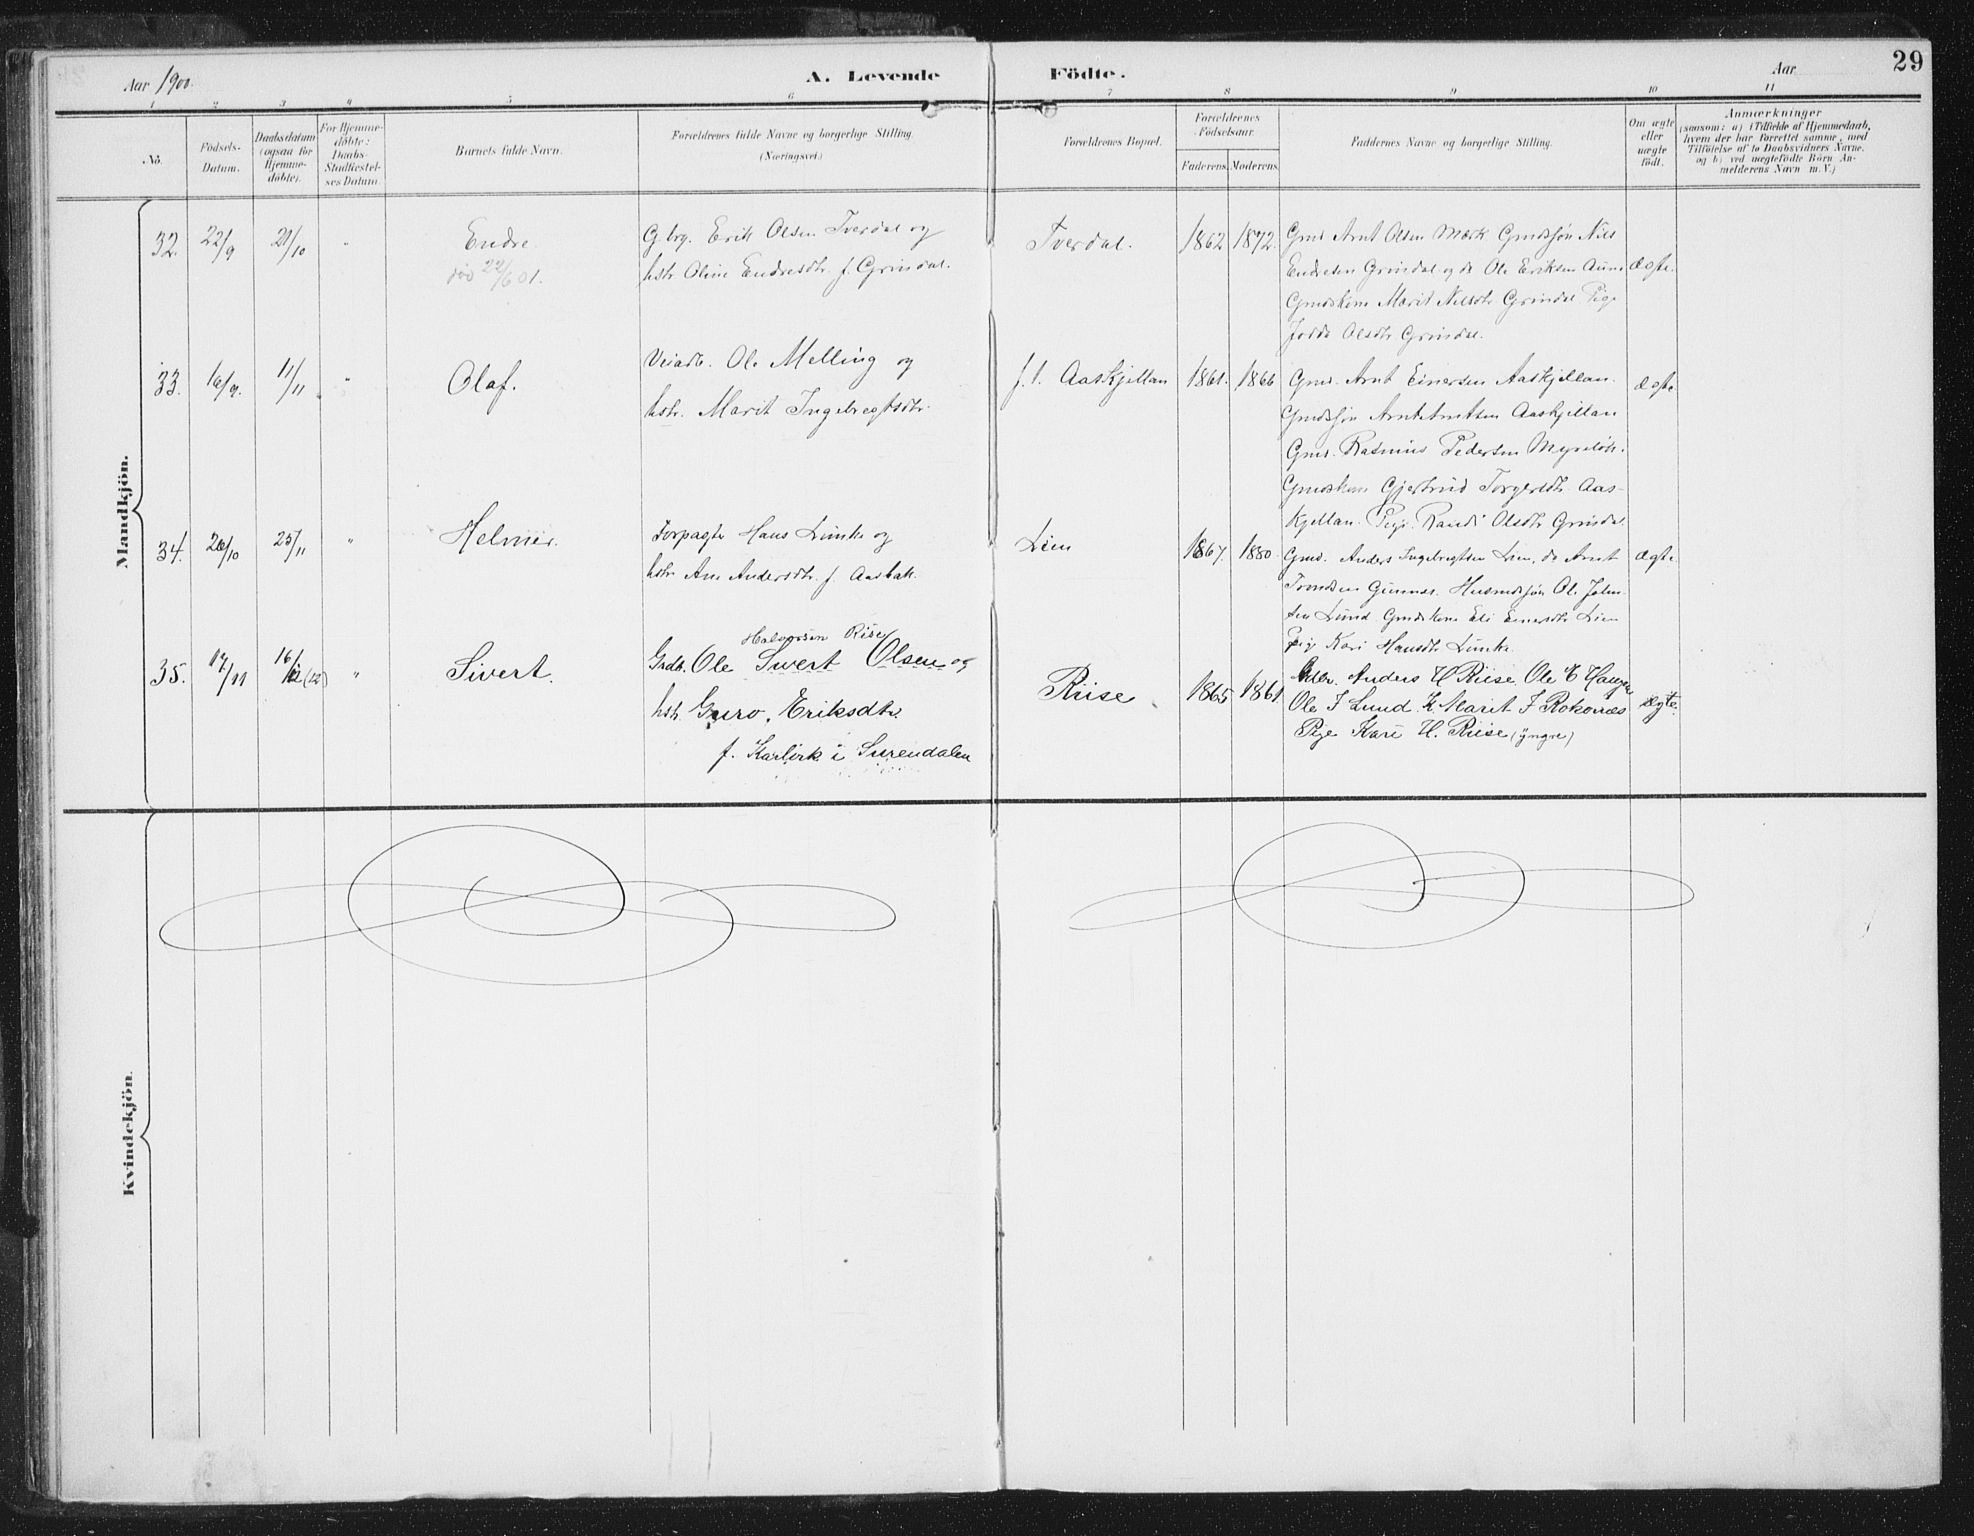 Aar 1900.
A. Levende Födte.
Aar
29
1 2 3 4 5 6 7 8 9 10 11
No.
Födsels-
Datum.
Daabsdatum
(ogsaa for
Hjemme-
döbte).
For Hjemme-
döbte:
Daabs-
Stadfæstel-
ses Datum.
Barnets fulde Navn.
Forældrenes fulde Navne og borgerlige Stilling.
(Næringsvei.)
Forældrenes Bopæl.
Forældrenes
Födselsaar.
Faderens. Moderens.
Faddernes Navne og borgerlige Stilling.
Om ægte
eller
uægte
födt.
Anmærkninger
(saasom: a) i Tilfælde af Hjemmedaab,
hvem der har forrettet samme, med
Tilföielse af to Daabsvidners Navne.
og b) ved uægtefödte Börn An-
melderens Navn m. V.)
Mandkjön.
32. 22/9 21/10 " Endre.
død 22/6 01.
G.brg. Erik Olsen Tverdal og
hstr. Oline Endresdtr. f. Grindal.
Tverdal. 1862 1872.
Gmd. Arnt Olsen Mærk Gmdssøn Nils
Endresen Grindal og do Ole Eriksen Aune
Gmdskone Marit Nilsdtr Grindal Pige
Olsdtr Grindal.
ægte.
33. 16/9. 11/11 " Olaf.
Veiarb. Ole Melling og
hstr. Marit Ingebregtsdtr.
f. t. Aaskjellan 1861. 1866
Gmd. Arnt Einersen Aaskjellan.
Gmdssøn Arnt Arntsen Aaskjellan
Gmd. Rasmus Pedersen
Gmdskone Gjertrud Torgersdtr. Aas-
kjellan. Pige. Randi Olsdtr Grindal.
ægte
34. 26/10 25/11 " Helmer.
Forpagter Hans Lunke og
hstr. Ane Andersdtr. f. Aasbak.
Lien 1867. 1880.
Gmd. Anders Ingebregtsen Lien, do Arnt
Trondsen Husmdssøn Ole John-
sen Lund Gmdskone Eli Einersdtr Lien
Pige Kari Hansdtr Lunke.
ægte
35. 17/11 16/12 (12) " Sivert.
Halvorsen Riise
Grdb. Ole Sivert Olsen og
hstr. Guro, Eriksdtr.
f. Karlsvik i Surendalen
Riise 1865 1861
Anders H Riise, Ole E Haugen
Ole J Lund K. Marit J Rokones
Pige Kari H. Riise (yngre)
ægte.
Kvindekjön.